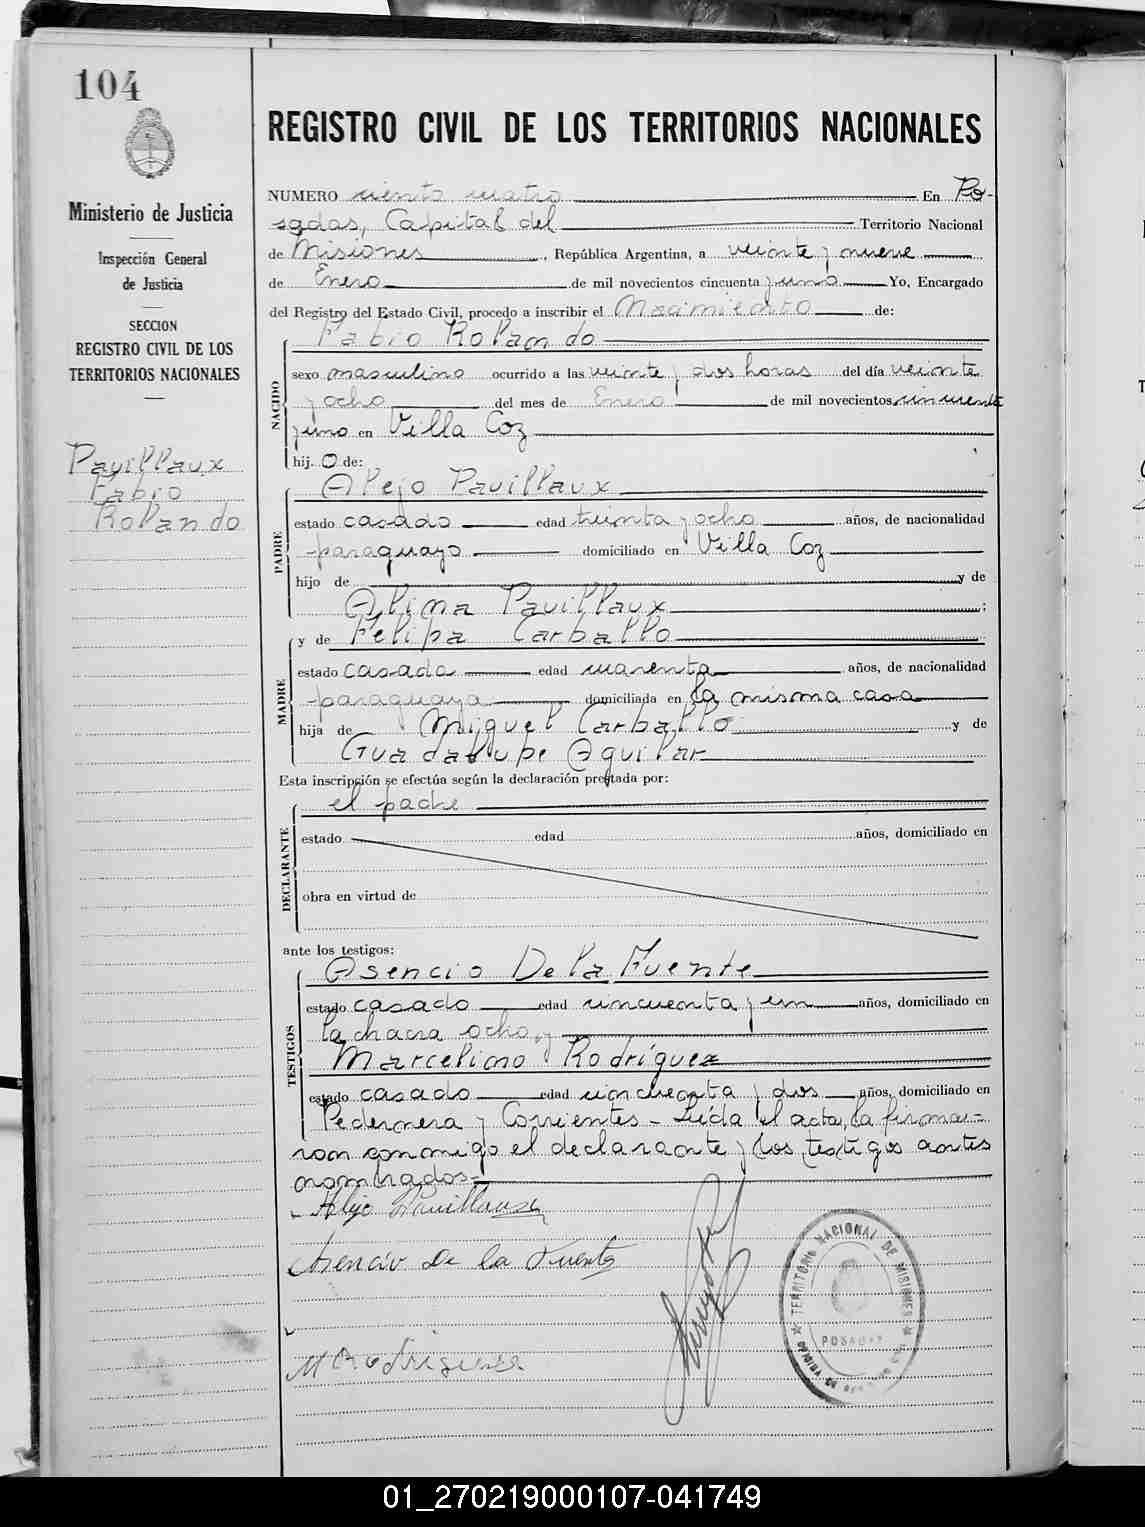 104
Ministerio de Justicia
Inspección General
de Justicia
SECCION
REGISTRO CIVIL DE LOS
TERRITORIOS NACIONALES
Pavillaux
Fabio
Rolando
REGISTRO CIVIL DE LOS TERRITORIOS NACIONALES
NUMERO ciento cuatro En Po-
sadas, Capital del Territorio Nacional
de Misiones, República Argentina, a veinte y nueve
de Enero de mil novecientos cincuenta y uno Yo, Encargado
del Registro del Estado Civil, procedo a inscribir el Nacimiento de:
Fabio Rolando
NACIDO
sexo masculino ocurrido a las veinte y dos horas del día veinte
y ocho del mes de Enero de mil novecientos cincuenta
y uno en Villa Coz
hij.o de:
Alejo Pavillaux
PADRE
estado casado edad treinta y ocho años, de nacionalidad
paraguayo domiciliado en Villa Coz
hijo de y de
Alina Pavillaux;
y de Felipa Carballo
MADRE
estado casada edad cuarenta años, de nacionalidad
paraguaya domiciliada en la misma casa
hija de Miguel Carballo y de
Guadalupe Aguilar
Esta inscripción se efectúa según la declaración prestada por:
el padre
DECLARANTE
estado edad años, domiciliado en
obra en virtud de
ante los testigos:
Asencio De la Fuente
TESTIGOS
estado casado edad cincuenta y un años, domiciliado en
la chacra ocho, y
Marcelino Rodríguez
estado casado edad cincuenta y dos años, domiciliado en
Pedernera y Corrientes - Leída el acta, la firma-
ron conmigo el declarante y los testigos antes
nombrados=
Alejo Pavillaux
Asencio De la Fuente
M Rodriguez
TERRITORIO NACIONAL DE MISIONES
POSADAS
01_270219000107-041749